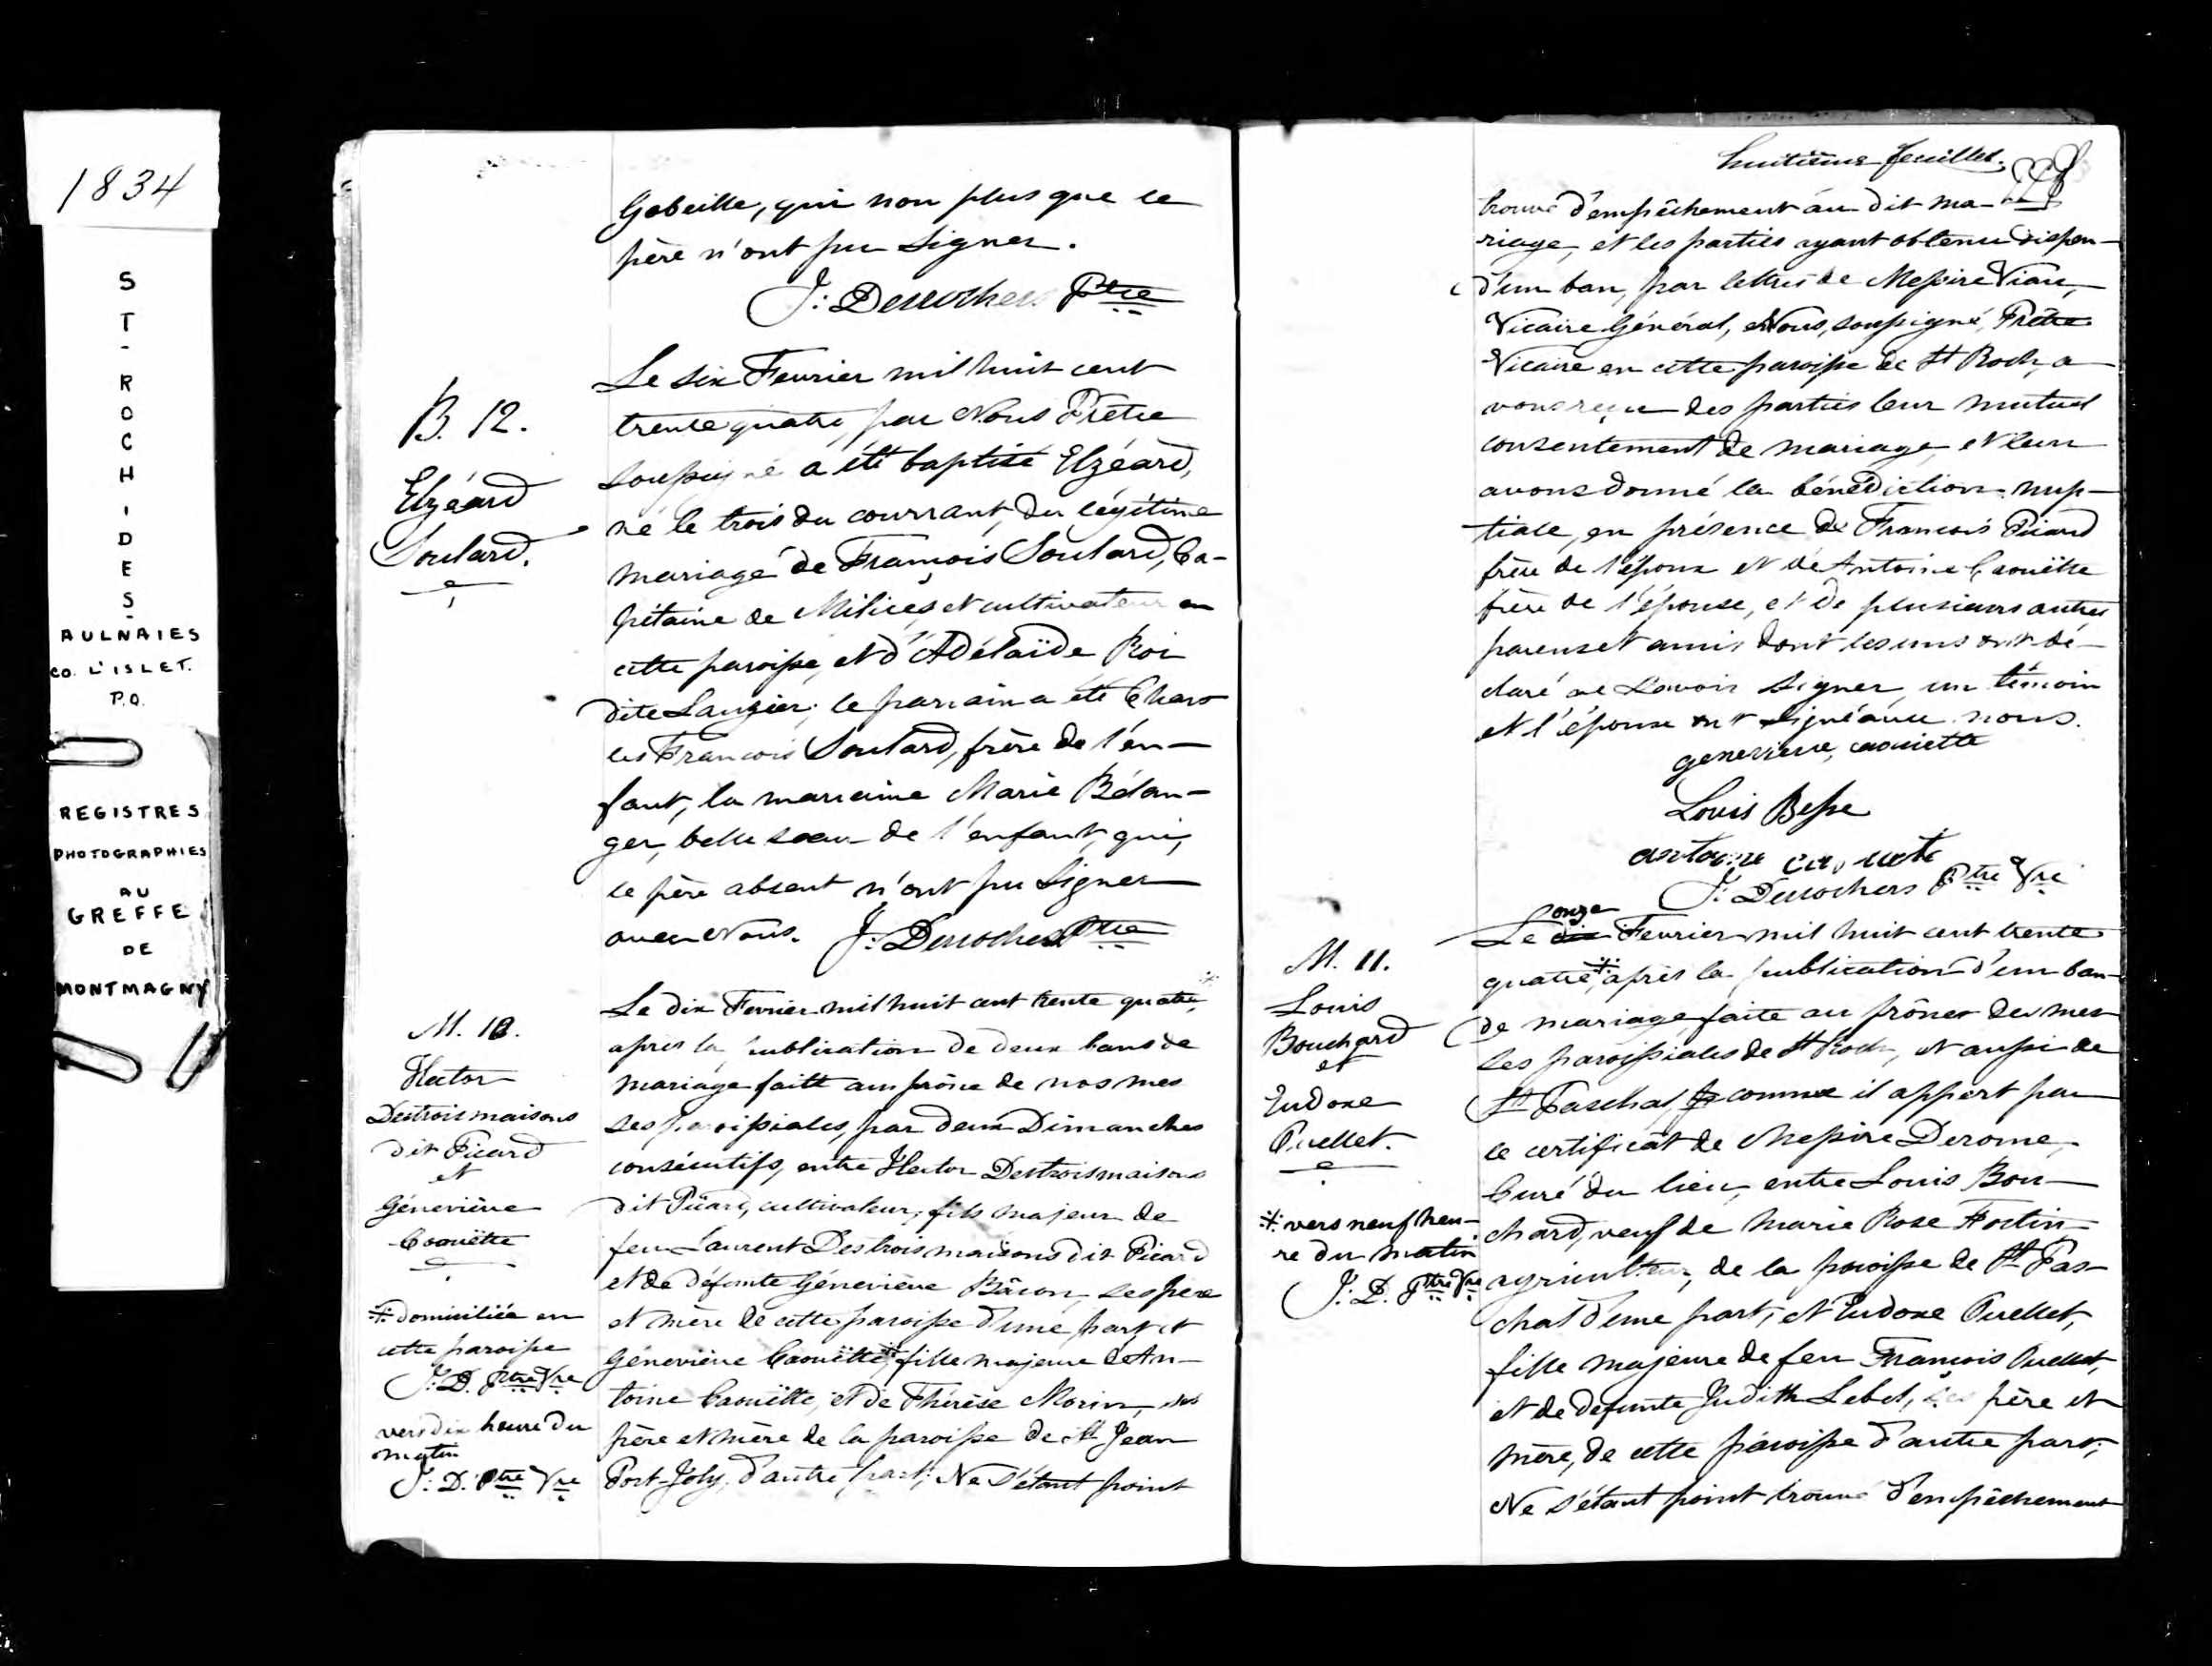 1834
ST-ROCH-DES-
AULNAIES
CO. L'ISLET.
P.Q.
REGISTRES
PHOTOGRAPHIES
AU
GREFFE
DE
MONTMAGNY
Gobeille, qui non plus que le
père n'ont pu Signer.
J: Desrochers Ptre
B. 12.
Elzéard
Soulard.
Le Six Fevrier mil huit cent
trente quatre, par Nous Prêtre
soussigné a été baptisé Elzéard,
né le trois du courrant, du légitime
mariage de François Soulard, Ca-
pitaine de Milices, et cultivateur en
cette paroisse, et d'Adélaïde Roi
dite Lauzier; le parrain a été Char
les François Soulard, frère de l'en-
fant, la marraine Marie Bélan-
ger, belle soeur de l'enfant, qui,
le père absent n'ont pu Signer
avec Nous. J: Desrochers Ptre
M. 10.
Hector
Destroismaisons
dit Picard
et
Géneviève
Caouëtte
Le dix Fevrier mil huit cent trente quatre,
après la publication de deux bans de
mariage faitt au prône de nos mes
ses paroissiales, par deux Dimanches
consécutifs, entre Hector Destroismaisons
dit Picard, cultivateur, fils majeur de
feu Laurent Destroismaisons dit Picard
et de défunte Géneviève Bâcon, ses père
et mère de cette paroisse d'une part, et
Géneviève Caouëtte, fille majeure de An-
toine Caouëtte, et de Thérèse Morin, ses
père et mère de la paroisse de St Jean
Port-Joly, d'autre part; Ne s'étant point
domiciliée en
cette paroisse
J: D. Ptre Vre
vers dix heure du
matin
J: D. Ptre Vre
huitième feuillet.
trouvé d'empêchement au dit ma-
riage, et les parties ayant obtenu dispen-
d'un ban, par lettres de Messire Viau,
Vicaire Général, Nous, soussigné, Prêtre
Vicaire en cette paroisse de St Roch, a
vons reçu des parties leur mutuel
consentement de mariage, et leur
avons donné la bénédiction nup-
tiale, en présence de François Picard
frère de l'époux et de Antoine Caouëtte
frère de l'épouse, et de plusieurs autres
parens et amis dont les uns ont dé-
claré ne savoir signer, un témoin
et l'épouse ont Signé avec nous.
genevieve, caouette
Louis Besse
antoine
J: Desrochers Ptre Vre
M. 11.
Louis
Bouchard
et
Eudoxe
Ouellet.
onze
Le dix Fevrier mil huit cent trente
quatre, après la publication d'un ban
de mariage faite au prônes des mes
ses paroissiales de St Roch, et aussi de
St Paschal, comme il appert par
le certificat de Messire Derome,
Curé du lieu, entre Louis Bou-
chard, veuf de Marie Rose Fortin
agriculteur, de la paroisse de St Pas-
chal d'une part, et Eudoxe Ouellet,
fille majeure de feu François Ouellet,
et de defunte Judith Lebel, ses père et
mère, de cette paroisse d'autre part;
Ne s'étant point trouvé d'empêchement
vers neuf heu-
re du matin
J: D. Ptre Vre